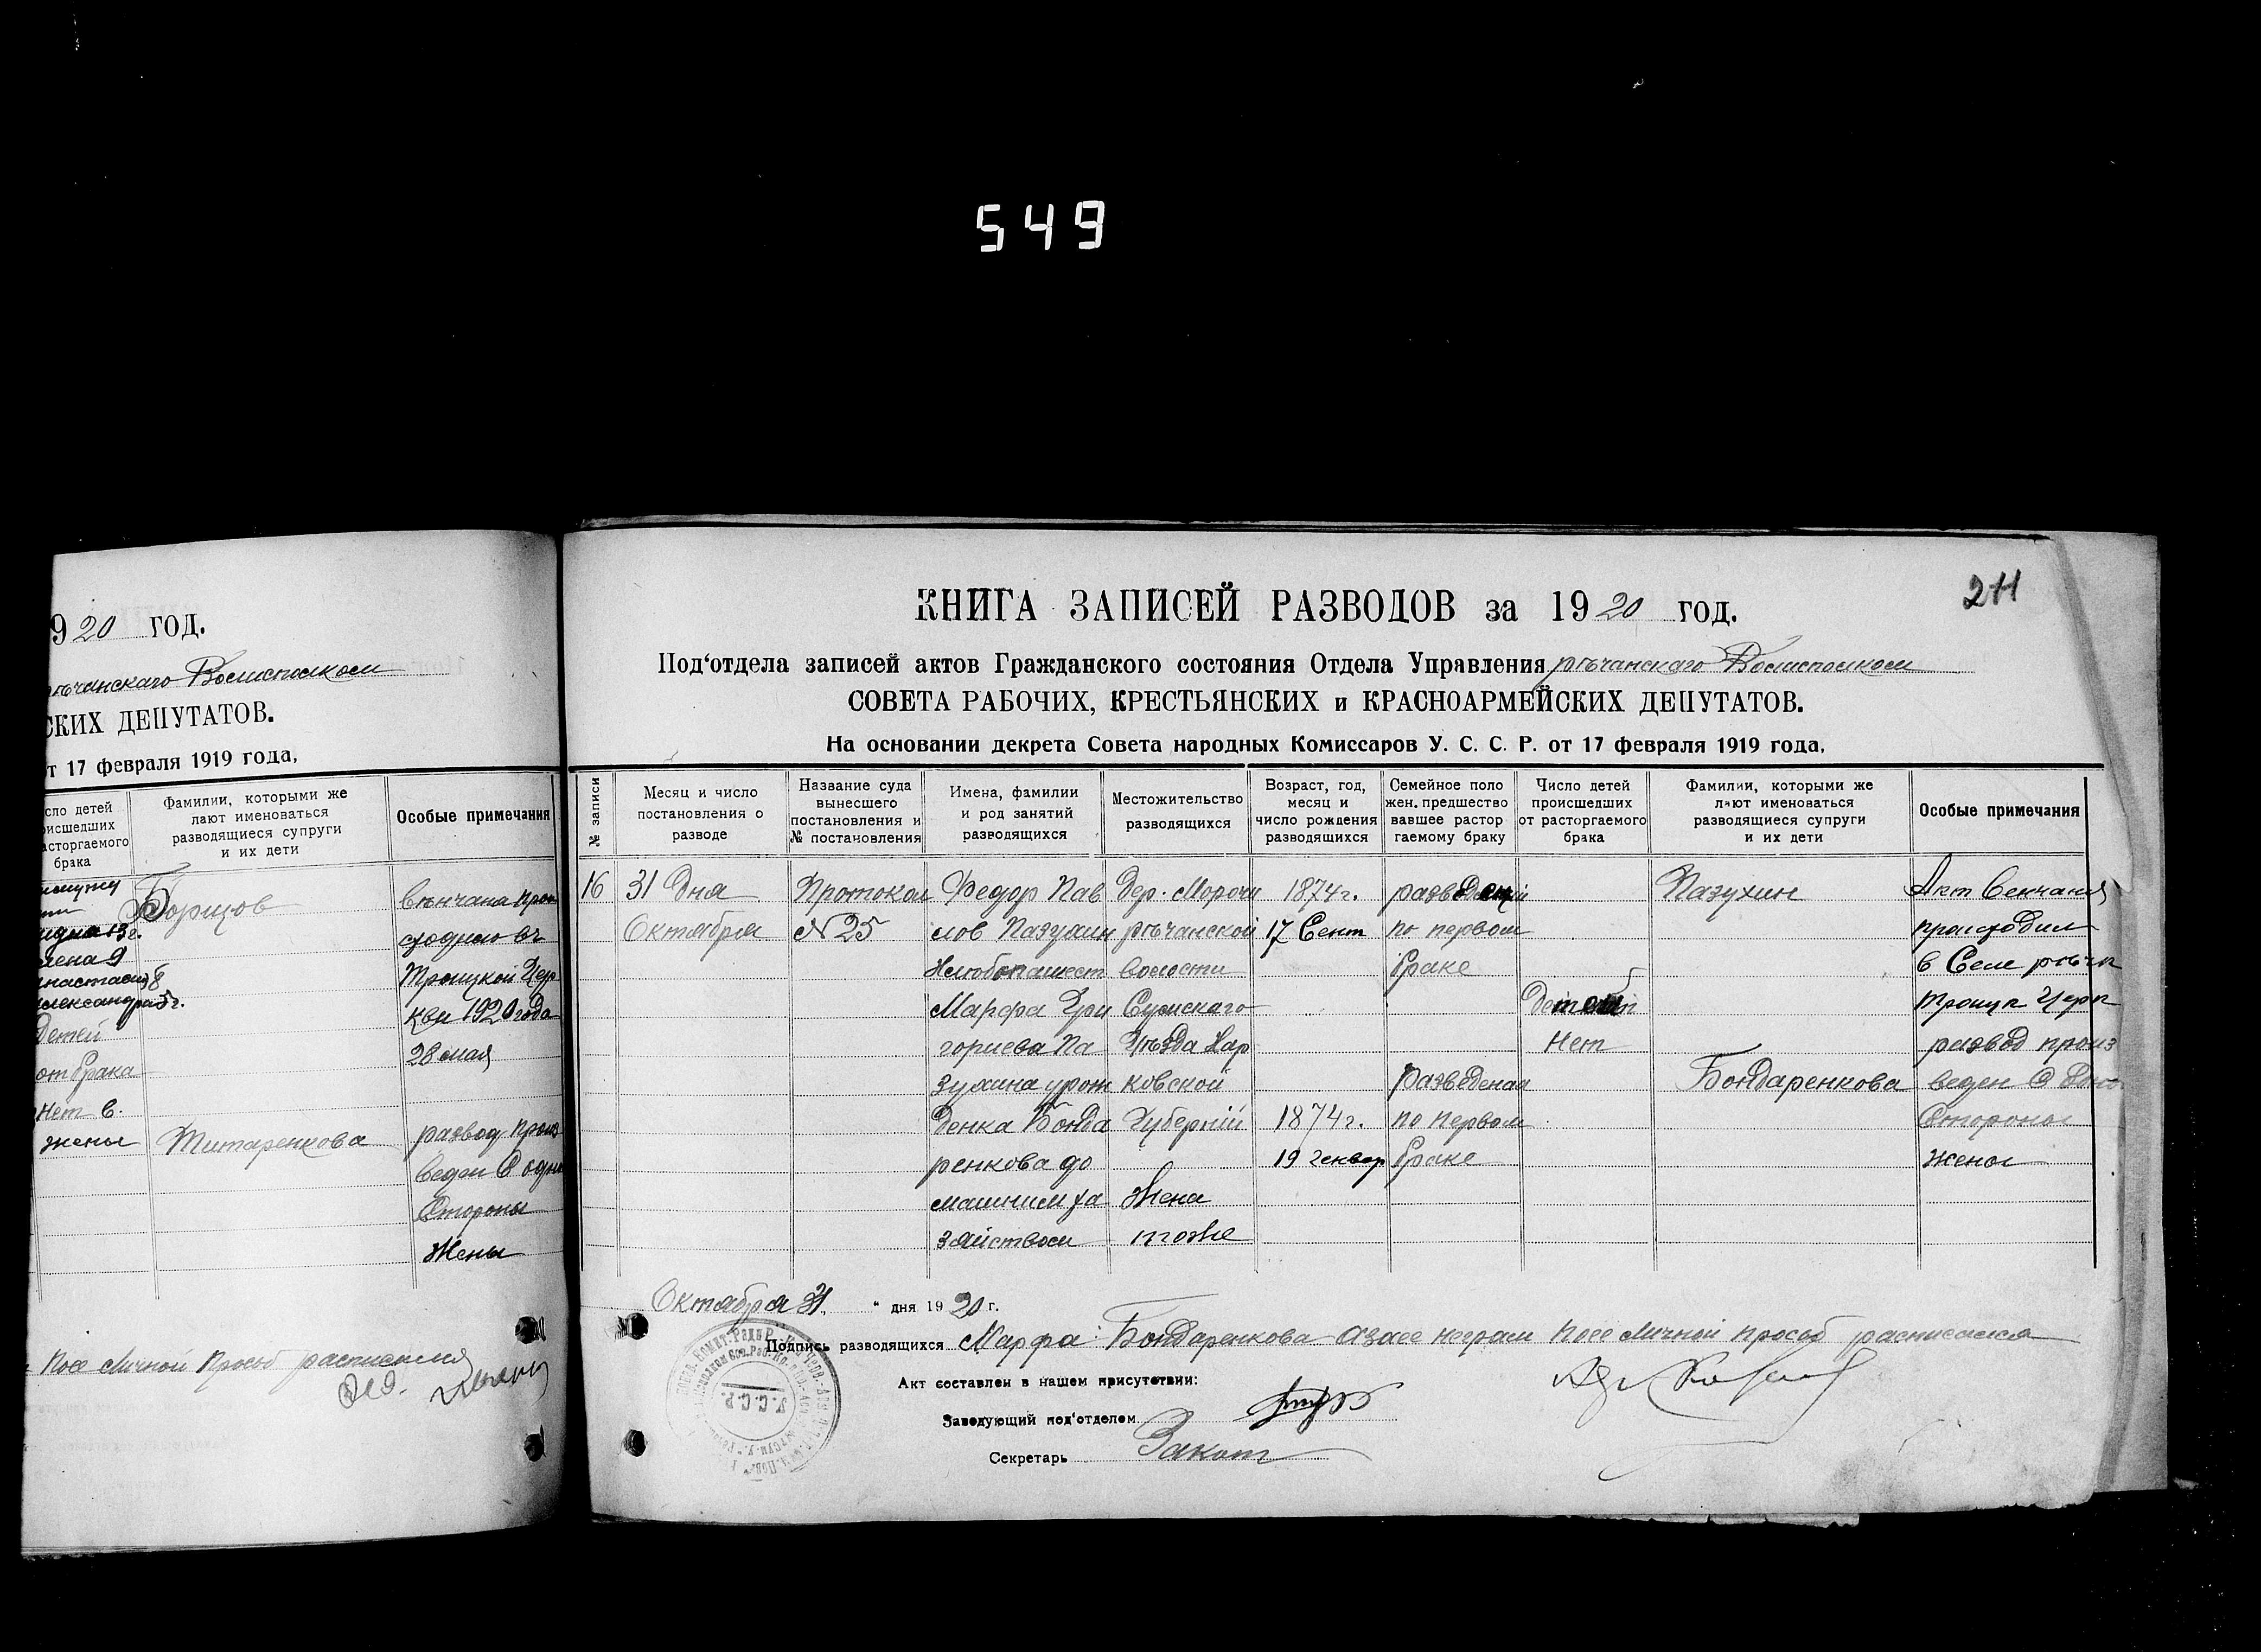 549
920 год.
рѣчанскаго Волисполком
СКИХ ДЕПУТАТОВ.
от 17 февраля 1919 года,
сло детей
расторгаемого
брака
Фамилии, которыми же
лают именоваться
разводящиеся супруги
и их дети
Особые примечания
Борщов
Детей
от брака
Нет в.
жены
Титаренкова
венчана прои
сходило въ
Троицкой Цер
кви 1920 года
28 мая
развод произ
веден С одн
Стороны
Жены
Пое Личной Прозьб расписался
211
КНИГА ЗАПИСЕЙ РАЗВОДОВ за 1920 год.
Под'отдела записей актов Гражданского состояния Отдела Управления рѣчанскаго Волисполком
СОВЕТА РАБОЧИХ, КРЕСТЬЯНСКИХ и КРАСНОАРМЕЙСКИХ ДЕПУТАТОВ.
На основании декрета Совета народных Комиссаров У. С. С. Р. от 17 февраля 1919 года,
№ записи
Месяц и число
постановления о
разводе
Название суда
вынесшего
постановления и
№ постановления
Имена, фамилии
и род занятий
разводящихся
Местожительство
разводящихся
Возраст, год,
месяц и
число рождения
разводящихся
Семейное поло
жен. предшество
вавшее растор
гаемому браку
Число детей
происшедших
от расторгаемого
брака
Фамилии, которыми же
лают именоваться
разводящиеся супруги
и их дети
Особые примечания
16
31 Дня
Октября
Протокол
№ 25
Федор Пав
лов Пазухин
Хлебопашест
Марфа Гри
гориева Па
зухина урож
денка Бонда
ренкова до
машним ха
зяйством
Дер. Мороч
рѣчанской
волости
Сумскаго
Уѣзда Хар
ковской
Губернiй
Жена
тоже
1874г.
17 Сент
1874г.
19 генвар
разведен
по первом
браке
Разведеная
по первом
браке
Детей
Нет
Пазухин
Бондаренкова
Акт венчания
происходил
в Селе рѣчк
Троицк Церк
развод произ
веден С
Стороны
жены
Октября 31 " дня 1920 г.
Подпись разводящихся Марфа Бондаренкова азаее неграм Поее Личной прозьб расписался
Акт составлен в нашем присутствии:
Заведующий под'отделом
Секретарь
У.С.С.Р.